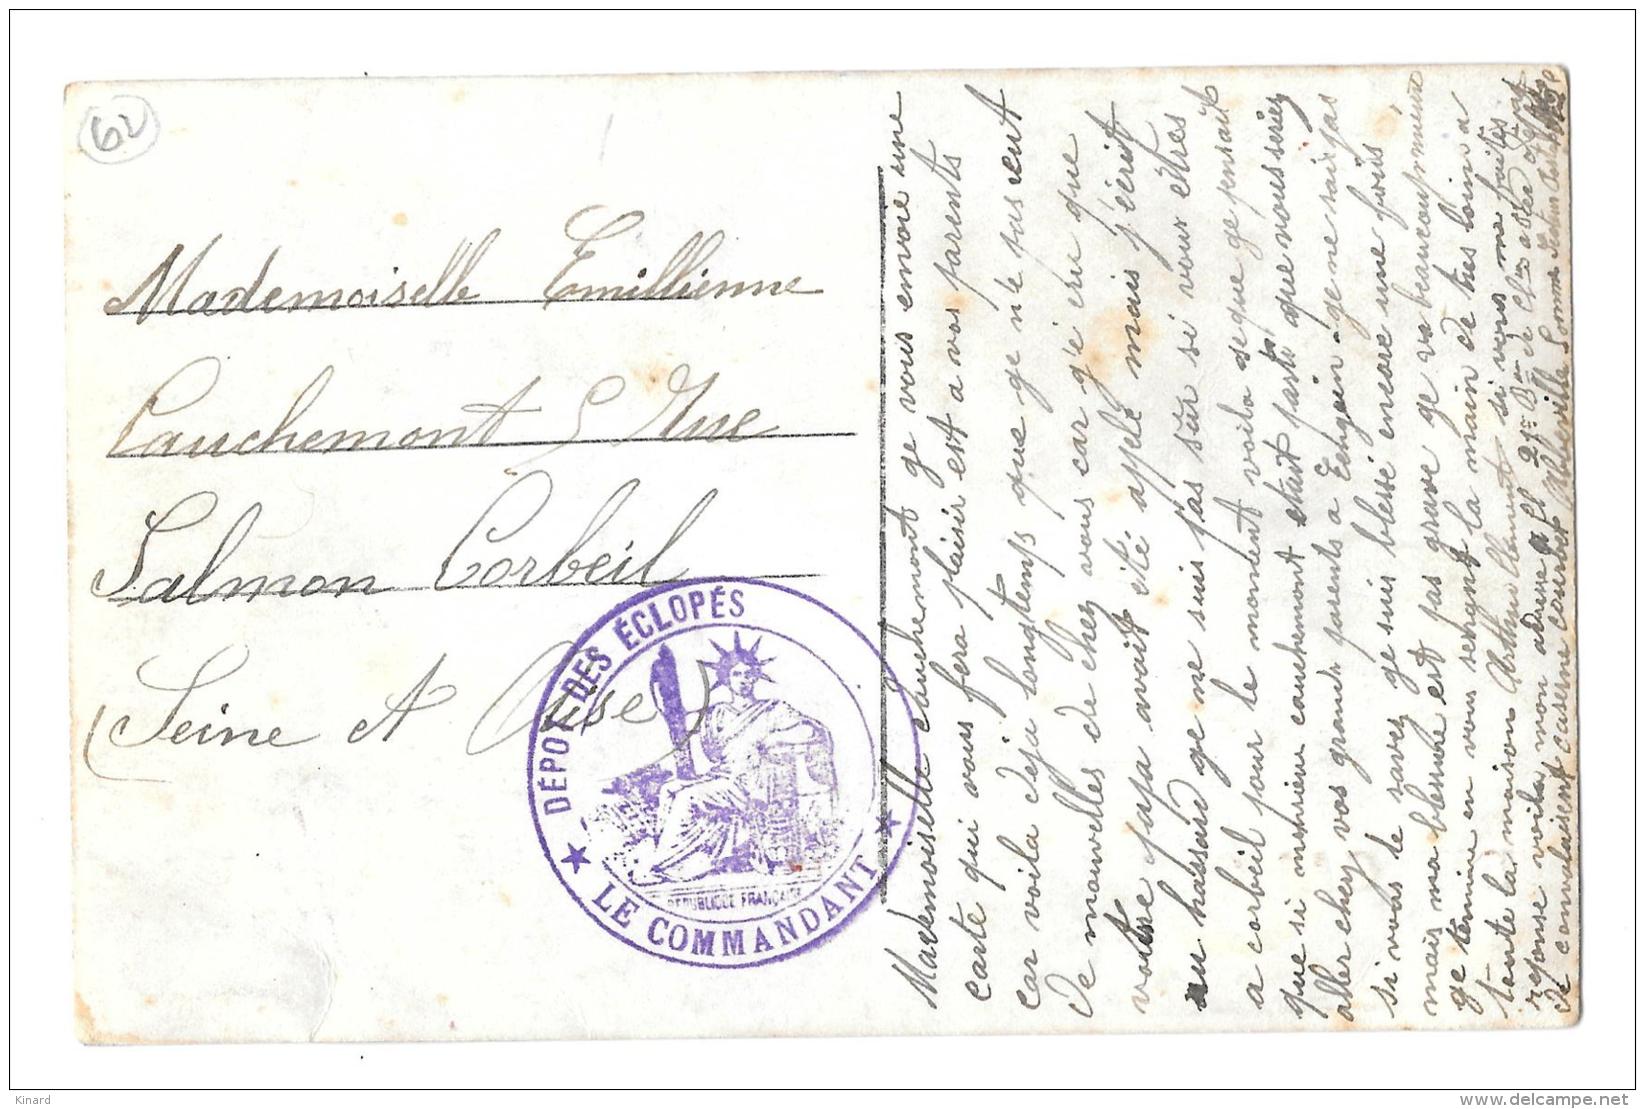 62
Mademoiselle Emillienne
Cauchemont 5 Rue
Salmon Corbeil
(Seine et Oise)
DÉPOT DES ÉCLOPÉS
RÉPUBLIQUE FRANÇAISE
LE COMMANDANT
Mademoiselle Cauchemont ge vous envoie une
carte qui vous fera plaisir est a vos parents
car voila deja longtemps que ge n'e pas eut
de nouvelles de chez vous car g'é cru que
votre papa avait été appelé mais j'écrit
au hasard ge ne suis pas sûr si vous êtres
a corbeil pour le moment voila se que ge pensait
que si monsieu cauchemont etait parti que vous seriez
aller chez vos grands parents a ge ne sais pas
si vous le savez ge suis blessé encore une fois
mais ma blessure est pas grave ge va beaucoup mieux
ge termine en vous serrant la main de tus loin a
toute la maison si vous me faites
reponse voila mon adresse 21e Bon de Chas a pied
de convalaisent caserne courbet Abbeville Somme
Kinard
www.delcampe.net